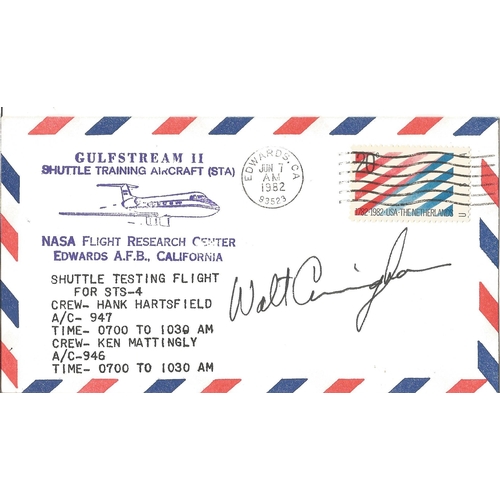 GULFSTREAM II
SHUTTLE TRAINING AIRCRAFT (STA)
NASA FLIGHT RESEARCH CENTER
EDWARDS A.F.B., CALIFORNIA
SHUTTLE TESTING FLIGHT
FOR STS-4
CREW- HANK HARTSFIELD
A/C- 947
TIME- 0700 TO 1030 AM
CREW- KEN MATTINGLY
A/C-946
TIME- 0700 TO 1030 AM
EDWARDS, CA
JUN 7
AM
1982
93523
20c
1782-1982·USA·THE NETHERLANDS
Walt Cunningham